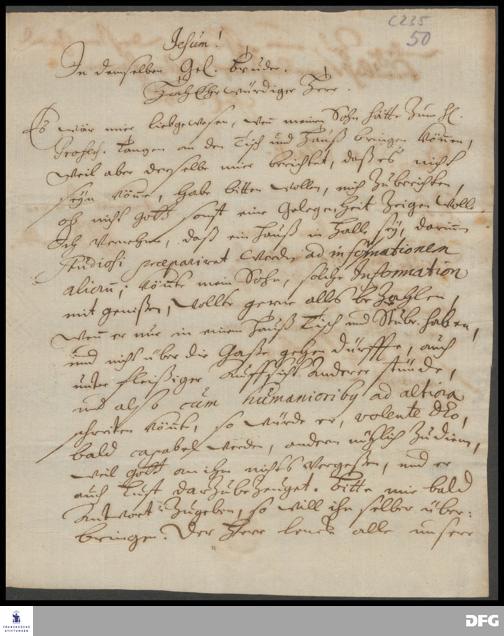 C 235
50
Jesum!
In demselben Gel. Bruder.
WohlEhrwürdiger Herr.
Es wär mir lieb gewesen, wen meinen Sohn hätte zum H.
Prof. Langen an den Tisch und Hauß bringen können,
weil aber derselbe mir berichtet, daß es nicht
seyn könne, habe bitten wollen, mich zu berichten,
ob nicht Gott sonst eine Gelegenheit zeigen wolle
Ich vernehme, daß ein Hauß in Halle sey, darinn
studiosi praepariret werden ad informationem
aliorum; könnte mein Sohn, solche Information
mit genißen, wollte gerne alls bezahlen,
wenn er nur in einem Hauß Tisch und Stube haben,
und nicht über die Gaße gehen dürffte, auch
unter fleißiger Auffsicht anderer stünde,
und also cum humanioribus ad altiora
schreiten könnte, so würde er, volente DEo,
bald capabel werden, andern nützlich zu dienen,
weil Gott an ihm nichts vergeßen, und er
auch Lust darzu bezeuget. Bitte mir bald
Antwort zu geben, so will ihn selber über-
bringen. Der Herr lencke alle unsere
FRANCKESCHE
STIFTUNGEN
DFG